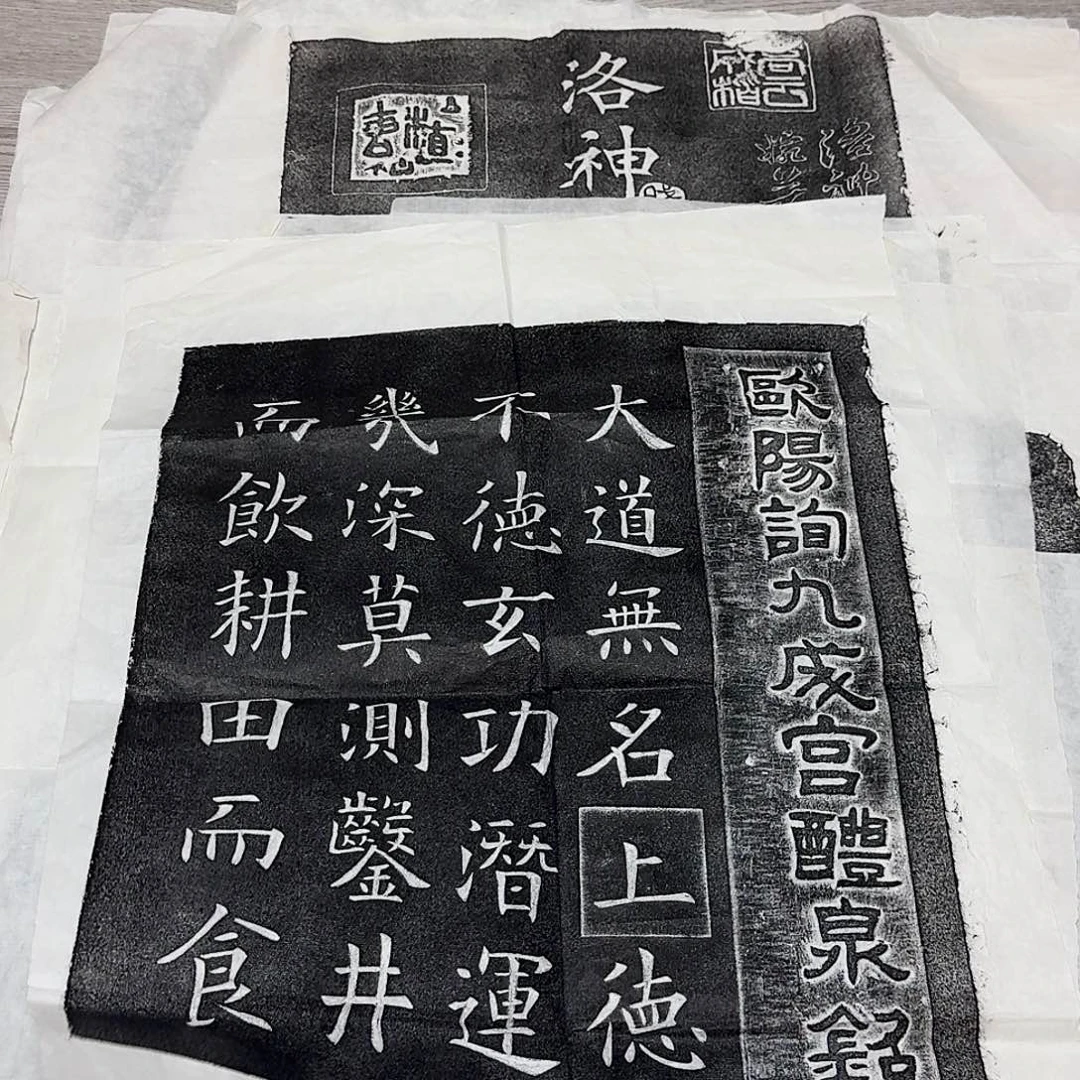 洛神
洛神
歐陽詢九成宮醴泉銘
大道無名上徳
不徳玄功潛運
幾深莫測鑿井
而飲耕田而食